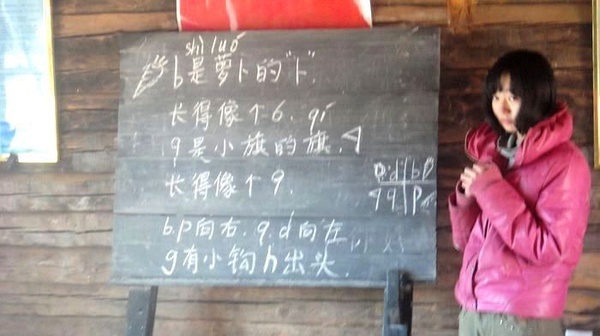 shì luó
b是萝卜的"卜".
长得像个6. qí
q是小旗的旗.
长得像个9.
d b p
q q p
b.p向右. q.d向左
g有小钩h出头.